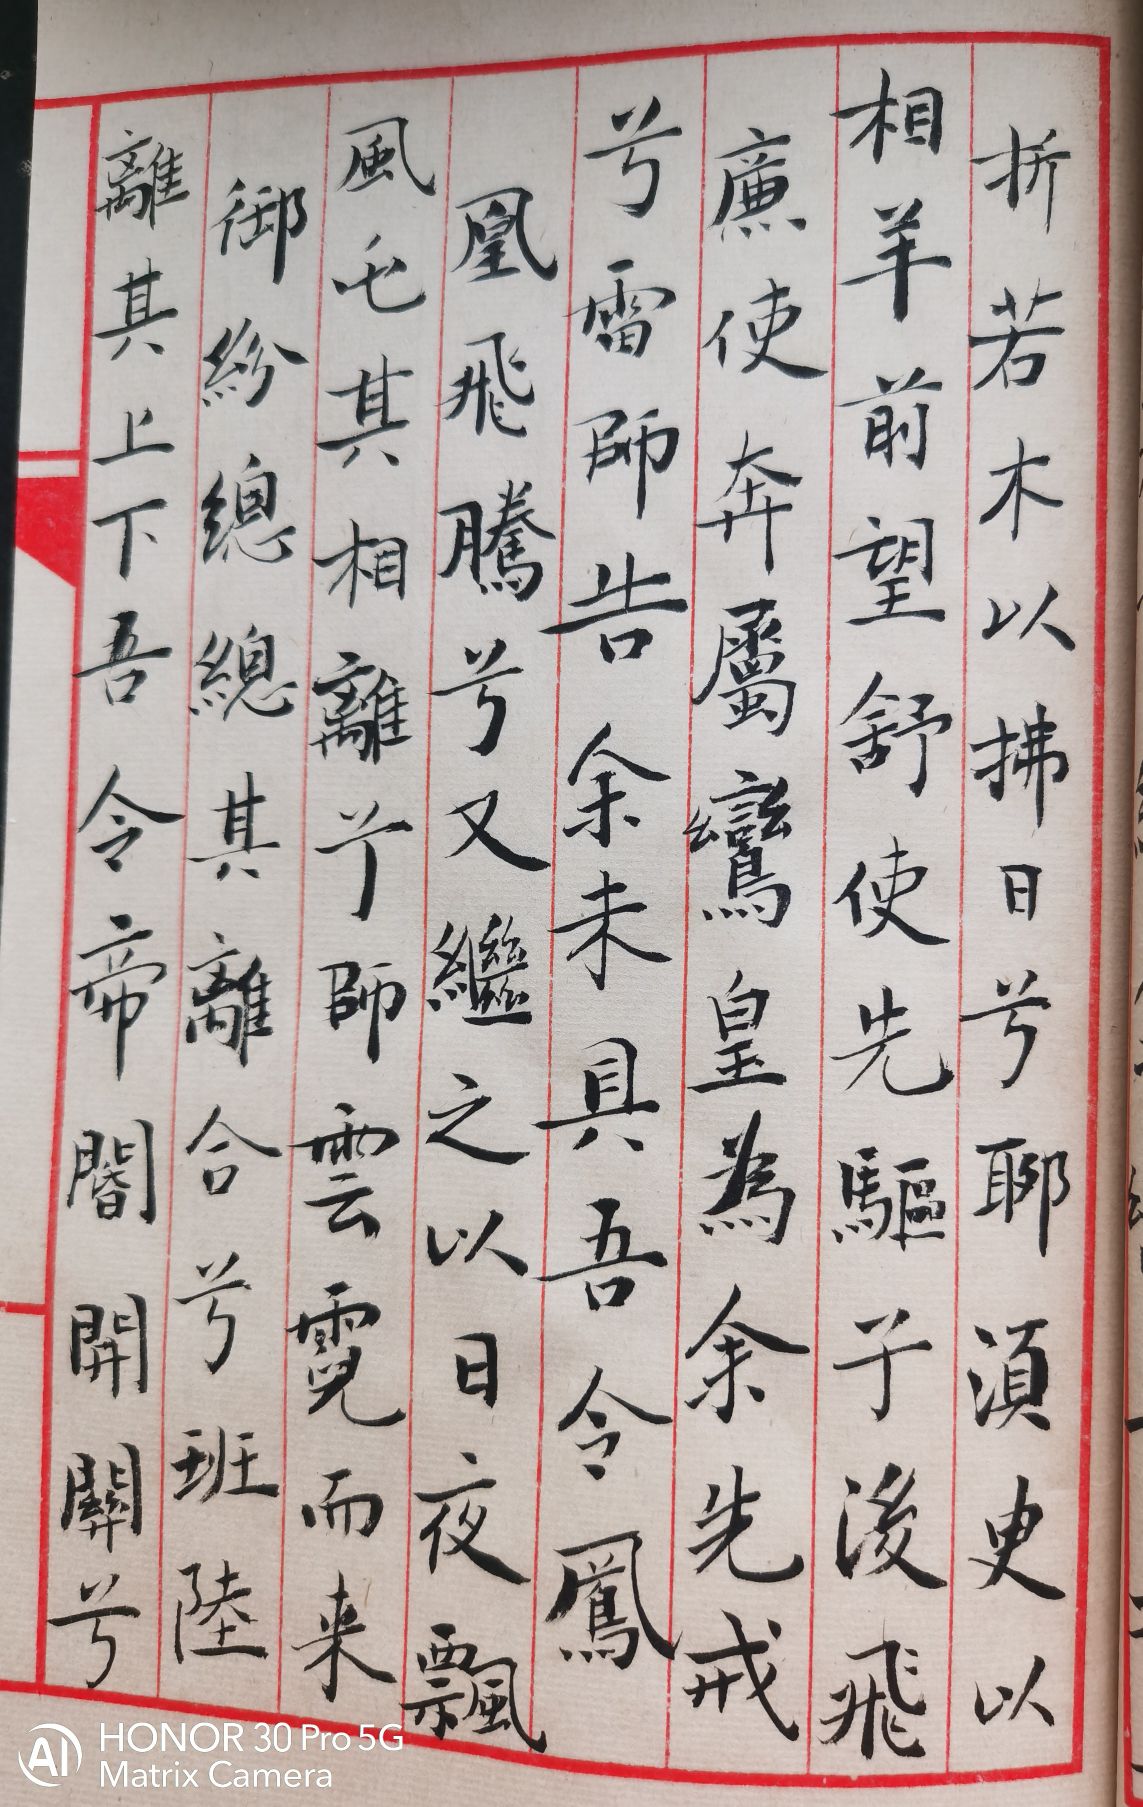 折若木以拂日兮聊須臾以
相羊前望舒使先驅子後飛
廉使奔屬鸞皇為余先戒
兮雷師告余未具吾令鳳
凰飛騰兮又繼之以日夜飄
風屯其相離兮師雲霓而来
御紛總總其離合兮班陸
離其上下吾令帝閽開關兮
HONOR 30 Pro 5G
Matrix Camera
AI